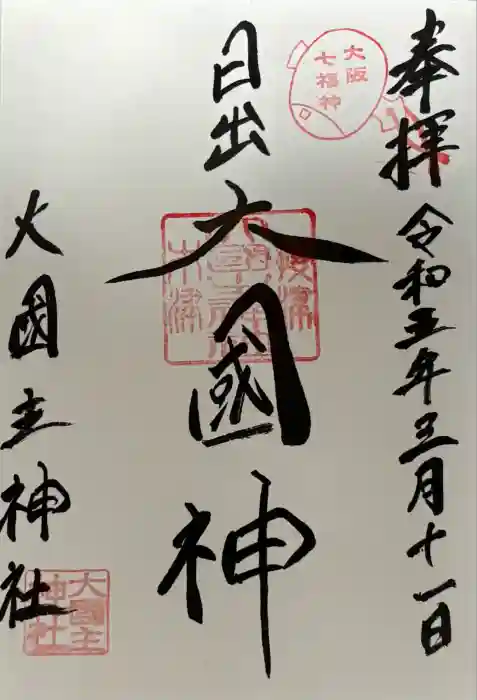 奉拝
令和五年三月十一日
大阪
七福神
日出
大國神
大國主神社
大國主
神社